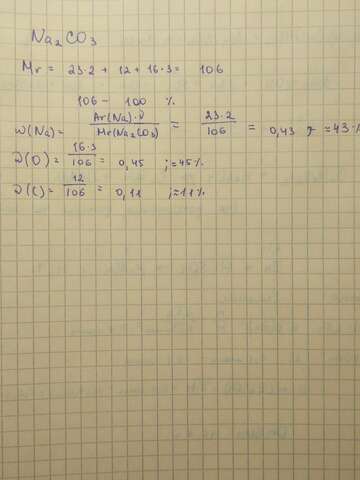 Na₂CO₃
Mr = 23·2 + 12 + 16·3 = 106
106 - 100 %
ω(Na) = Ar(Na)·ν / Mr(Na₂CO₃) = 23·2 / 106 = 0,43 ; = 43%
ω(O) = 16·3 / 106 = 0,45 ; = 45%
ω(C) = 12 / 106 = 0,11 ; = 11%